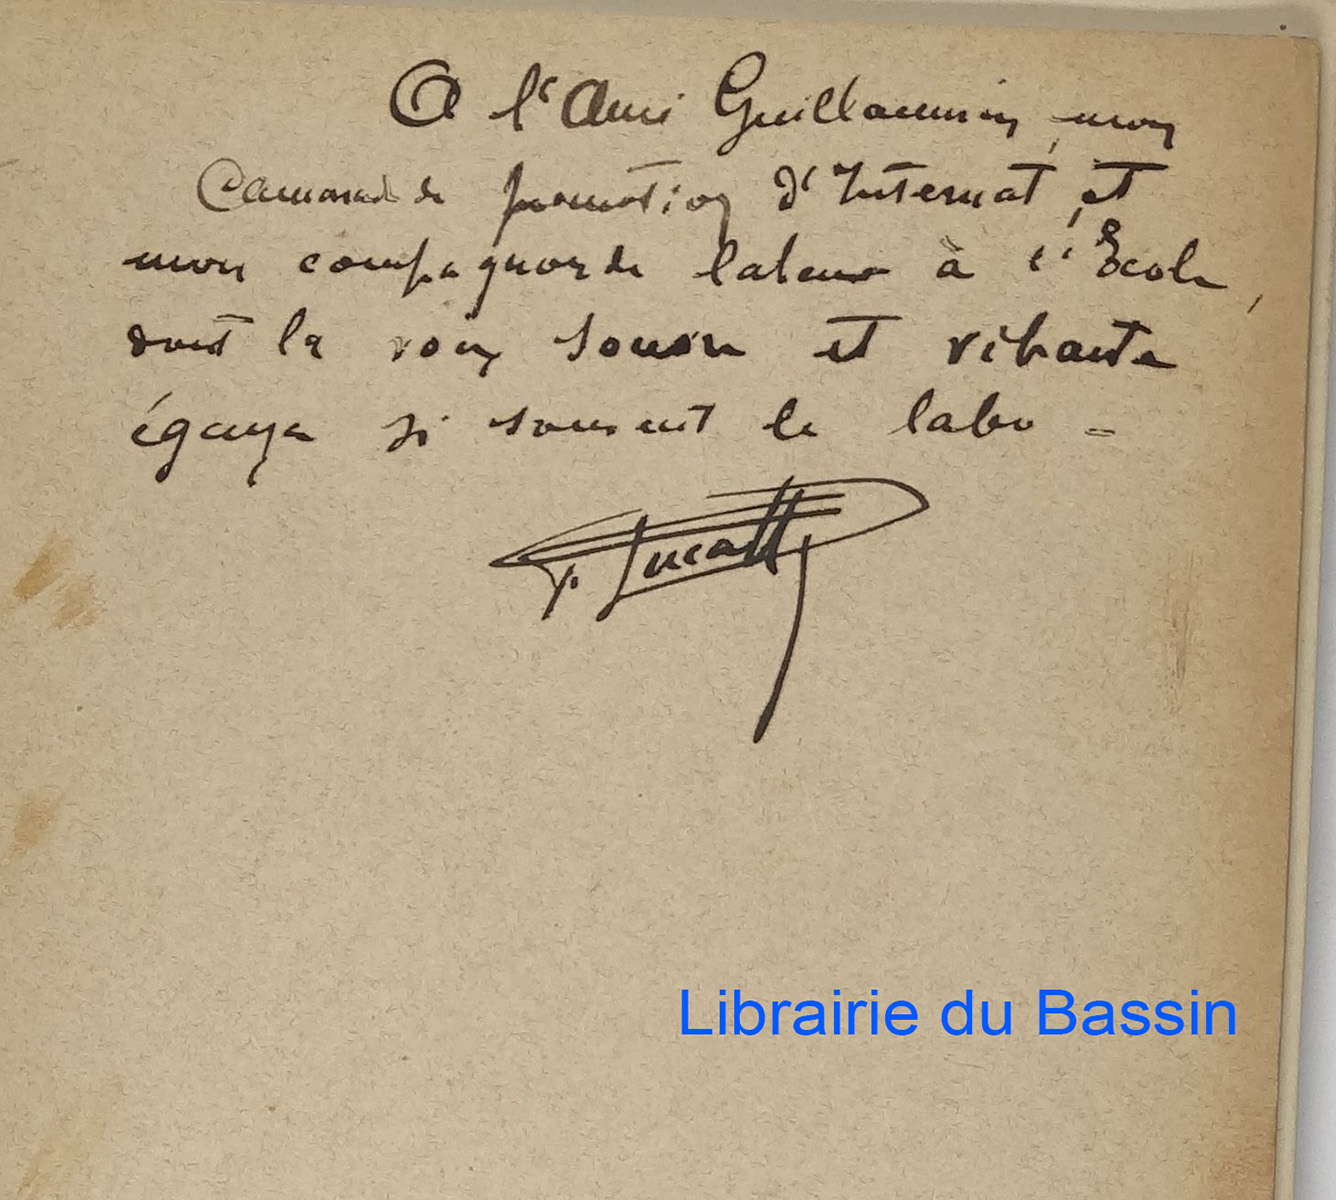 A l'Ami Guillaumin, mon
Camarade de promotion d'Internat, et
mon compagnon de labeur à l'École,
dont la voix sonore et vibrante
égaya si souvent le labo -
Librairie du Bassin